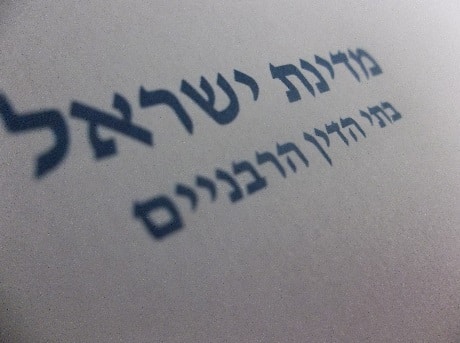 מדינת ישראל
בתי הדין הרבניים